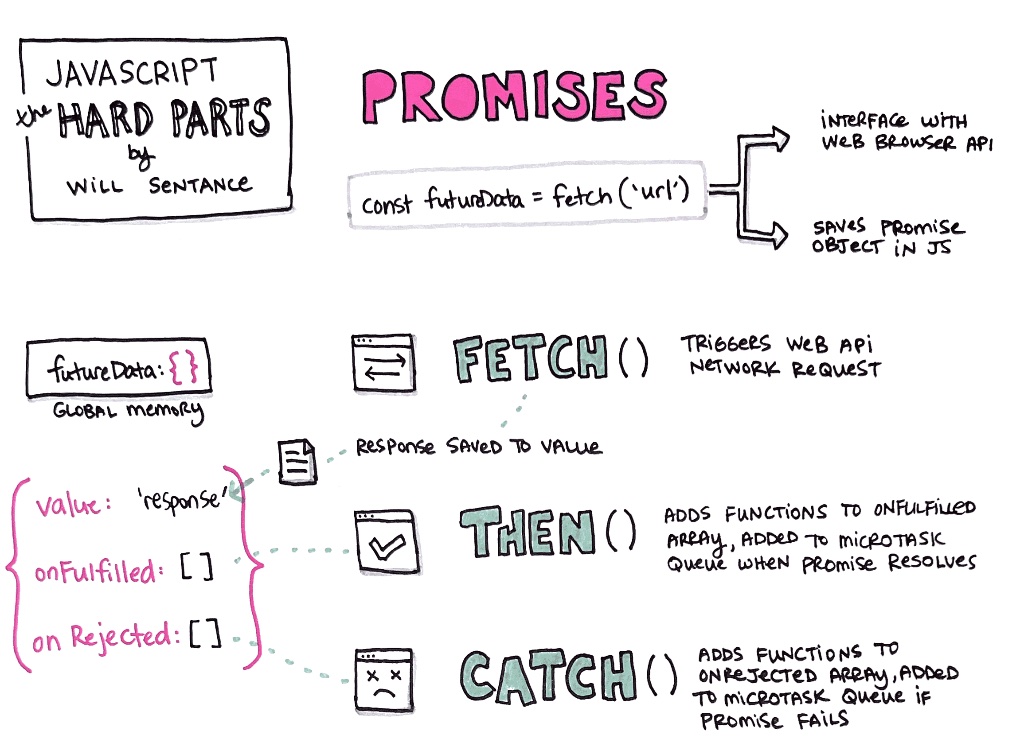 JAVASCRIPT
the HARD PARTS
by
WILL SENTANCE
PROMISES
const futureData = fetch('url')
INTERFACE WITH
WEB BROWSER API
SAVES PROMISE
OBJECT IN JS
futureData: {}
GLOBAL MEMORY
FETCH()
TRIGGERS WEB API
NETWORK REQUEST
RESPONSE SAVED TO VALUE
value: 'response'
onFulfilled: []
onRejected: []
THEN()
ADDS FUNCTIONS TO ONFULFILLED
ARRAY, ADDED TO MICROTASK
QUEUE WHEN PROMISE RESOLVES
CATCH()
ADDS FUNCTIONS TO
ONREJECTED ARRAY, ADDED
TO MICROTASK QUEUE IF
PROMISE FAILS